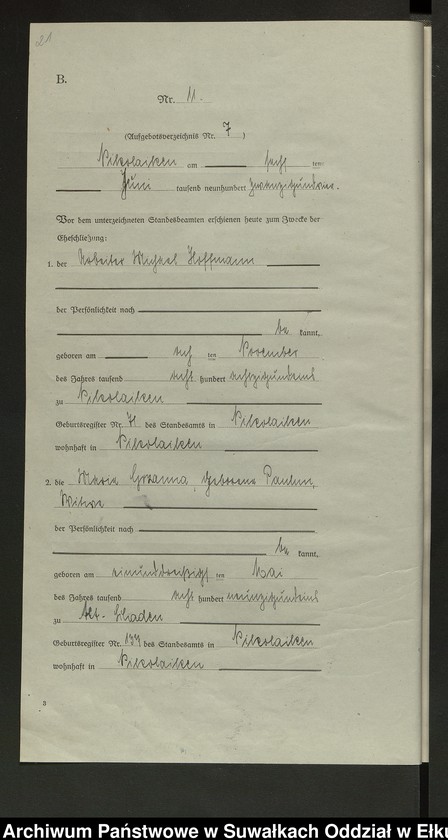 21
B.
Nr. 11.
(Aufgebotsverzeichnis Nr. 7)
Nikolaiken am sechs ten
Juni tausend neunhundert zwanzigundvier.
Vor dem unterzeichneten Standesbeamten erschienen heute zum Zwecke der
Eheschließung:
1. der Arbeiter Michael Hoffmann
der Persönlichkeit nach
be kannt,
geboren am ten November
des Jahres tausend acht hundert
zu Nikolaiken
Geburtsregister Nr. 71 des Standesamts in Nikolaiken
wohnhaft in Nikolaiken
2. die Marie geborene
Witwe
der Persönlichkeit nach
be kannt,
geboren am einunddreißigs ten Mai
des Jahres tausend acht hundert neunzigundeins
zu Alt-
Geburtsregister Nr. 177 des Standesamts in Nikolaiken
wohnhaft in Nikolaiken
3
Archiwum Państwowe w Suwałkach Oddział w Ełku